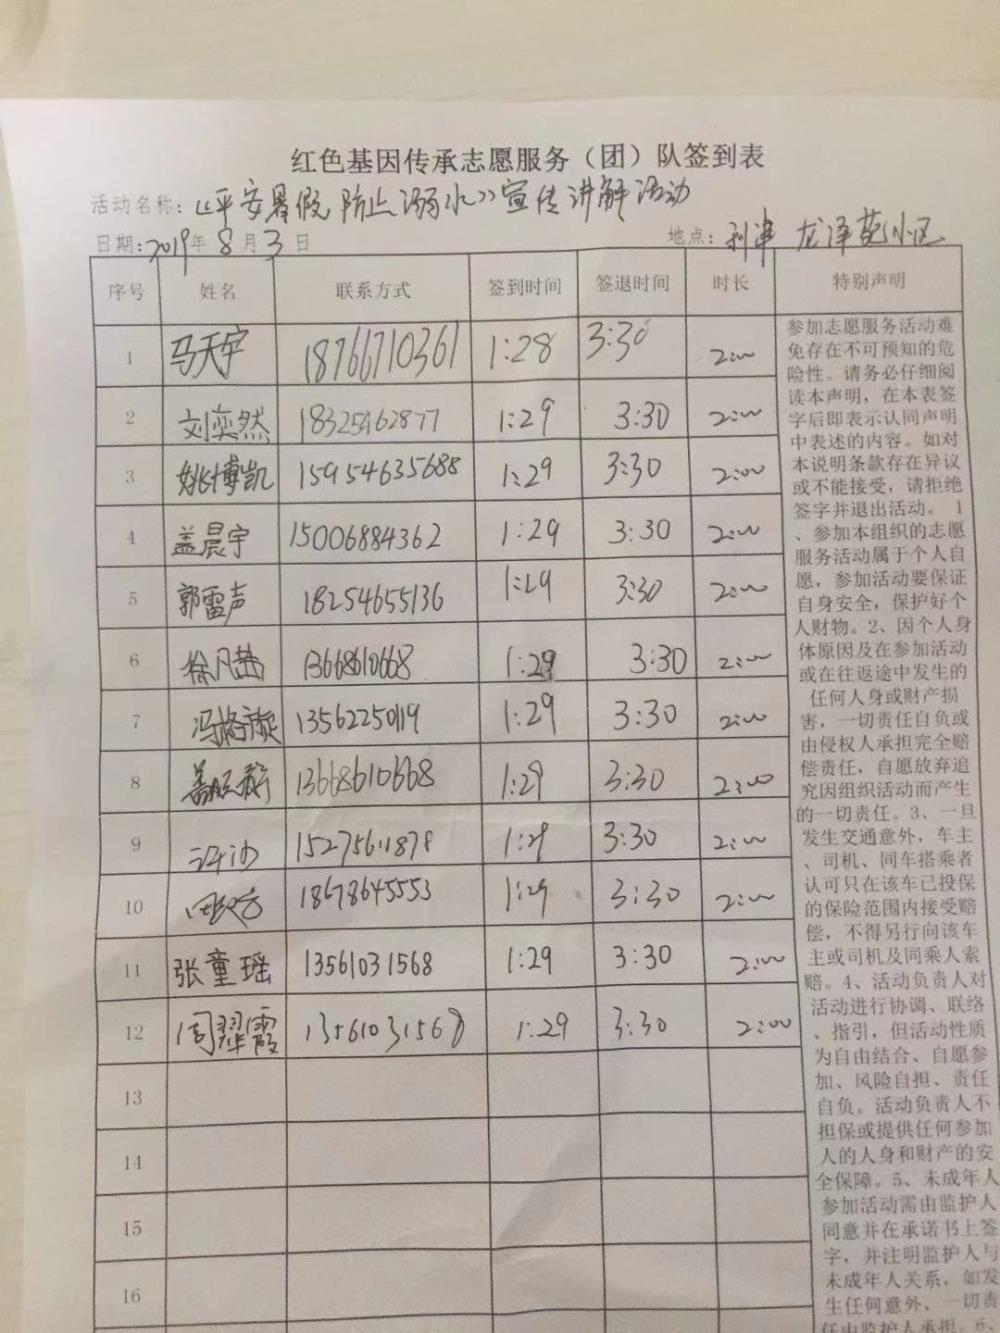 红色基因传承志愿服务（团）队签到表
活动名称：《平安暑假 防止溺水》宣传讲解活动
日期：2019年8月3日 地点：利津 龙泽苑小区
序号 姓名 联系方式 签到时间 签退时间 时长 特别声明
1 马天宇 18766710361 1:28 3:30 2:00
2 刘奕然 18325462877 1:29 3:30 2:00
3 姚博凯 15954635688 1:29 3:30 2:00
4 盖晨宇 15006884362 1:29 3:30 2:00
5 郭雷声 18254655136 1:29 3:30 2:00
6 徐凡茜 13668610668 1:29 3:30 2:00
7 冯格璇 13562250119 1:29 3:30 2:00
8 13668610668 1:29 3:30 2:00
9 1:29 3:30 2:00
10 18678645553 1:29 3:30 2:00
11 张童瑶 13561031568 1:29 3:30 2:00
12 周翠霞 13561031568 1:29 3:30 2:00
13
14
15
16
参加志愿服务活动难
免存在不可预知的危
险性。请务必仔细阅
读本声明，在本表签
字后即表示认同声明
中表述的内容。如对
本说明条款存在异议
或不能接受，请拒绝
签字并退出活动。 1
、参加本组织的志愿
服务活动属于个人自
愿，参加活动要保证
自身安全，保护好个
人财物。2、因个人身
体原因及在参加活动
或在往返途中发生的
任何人身或财产损
害，一切责任自负或
由侵权人承担完全赔
偿责任，自愿放弃追
究因组织活动而产生
的一切责任。3、一旦
发生交通意外，车主
、司机、同车搭乘者
认可只在该车已投保
的保险范围内接受赔
偿，不得另行向该车
主或司机及同乘人索
赔。4、活动负责人对
活动进行协调、联络
、指引，但活动性质
为自由结合、自愿参
加、风险自担、责任
自负。活动负责人不
担保或提供任何参加
人的人身和财产的安
全保障。5、未成年人
参加活动需由监护人
同意并在承诺书上签
字，并注明监护人与
未成年人关系，如发
生任何意外，一切责
任由监护人承担。6、